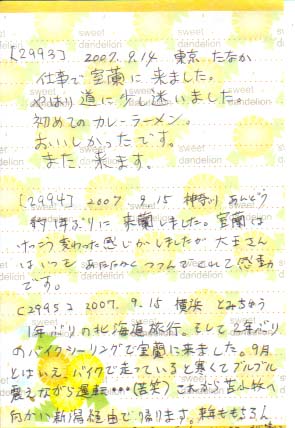 sweet dandelion
[2993] 2007.9.14 東京 たなか
仕事で室蘭に来ました。
やはり道に少し迷いました。
初めてのカレーラーメン。
おいしかったです。
また、来ます。
[2994] 2007 9.15 神奈川 あんどう
約1年ぶりに来蘭しました。室蘭は
けっこう変わった感じがしましたが大王さん
はいつもあたたかくつつんでくれて感動
です。
[2995] 2007.9.15 横浜 とみちゅう
1年ぶりの北海道旅行。そして2年ぶり
のバイクツーリングで室蘭に来ました。9月
とはいえ、バイクで走っていると寒くてブルブル
震えながら運転…(苦笑) これから苫小牧へ
向かい新潟経由で帰ります。来年ももちろん